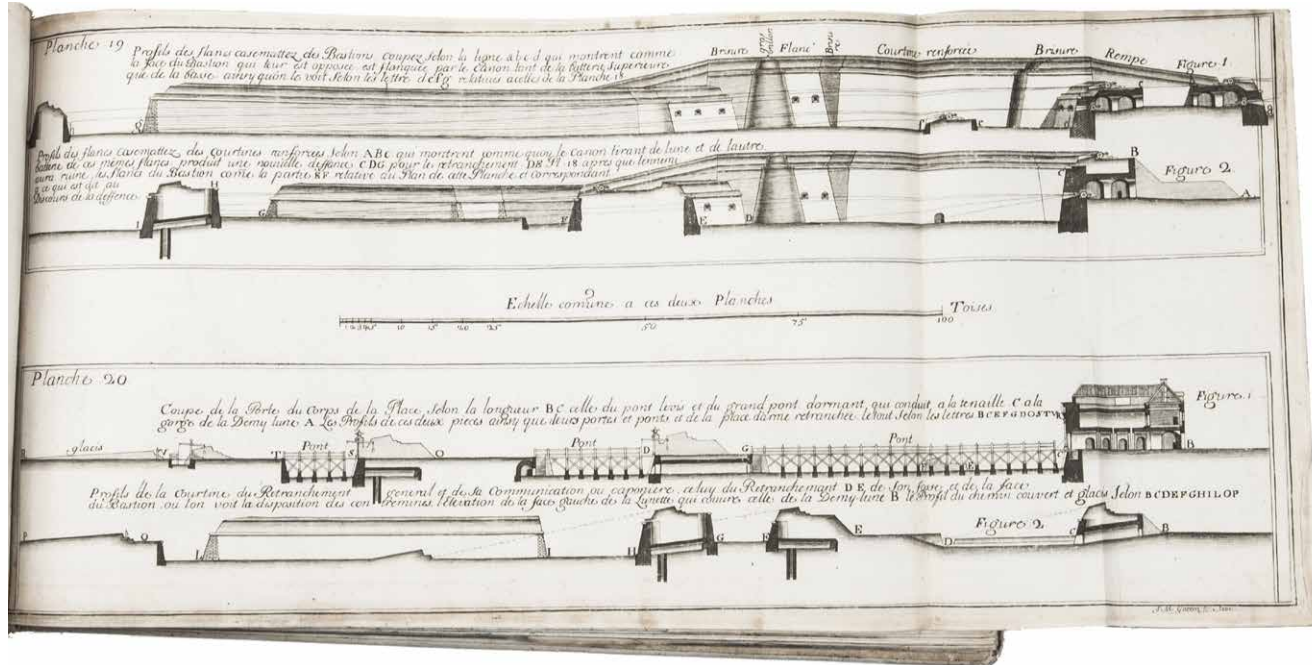 Planche 19
Profils des flancs casemattez des Bastions coupez selon la ligne abcd qui montrent comme
la face du Bastion qui leur est opposée est flanquée par le Canon tant de la batterie Superieure
que de la basse ainsy qu'on le voit Selon les lettre defg relatives acelles de la Planche 18
Brisure
gros
Flanc
Brisure
Courtine renforcée
Brisure
Rempe
Figure 1
Profils des flancs casemattez des Courtines renforcées Selon ABC qui montrent comme quoy le Canon tirant de lune et de lautre
batterie de ces mêmes flancs produit une nouvelle deffence CDG pour le retranchement DE Pl. 18 apres que lennemi
aura ruiné les flancs du Bastion come la partie EF relative au Plan de cette Planche et correspondant
a ce qui est dit au
Discours de la deffence
Figure 2
I H G F E D C B A
Echelle comune a ces deux Planches
Toises
5 10 15 20 25 50 75 100
Planche 20
Coupe de la Porte du Corps de la Place Selon la longueur BC celle du pont levis et du grand pont dormant, qui conduit a la tenaille C a la
gorge de la Demy lune A Les Profils de ces deux pieces ainsy que leurs portes et ponts et de la place darme retranchée le tout Selon les lettres BCEFGDOSTVR
Figure 1
glacis
Pont
Pont
Pont
T S O D G C B
Profils de la Courtine du Retranchement general et de sa Communication ou caponiere celuy du Retranchement DE de son fossé et de la face
du Bastion ou lon voit la disposition des contremines lElevation de la face gauche de la Lunette qui couvre celle de la Demy-lune B le Profil du chemin couvert et glacis Selon BCDEFGHILOP
Figure 2
P O L I H G F E D C B